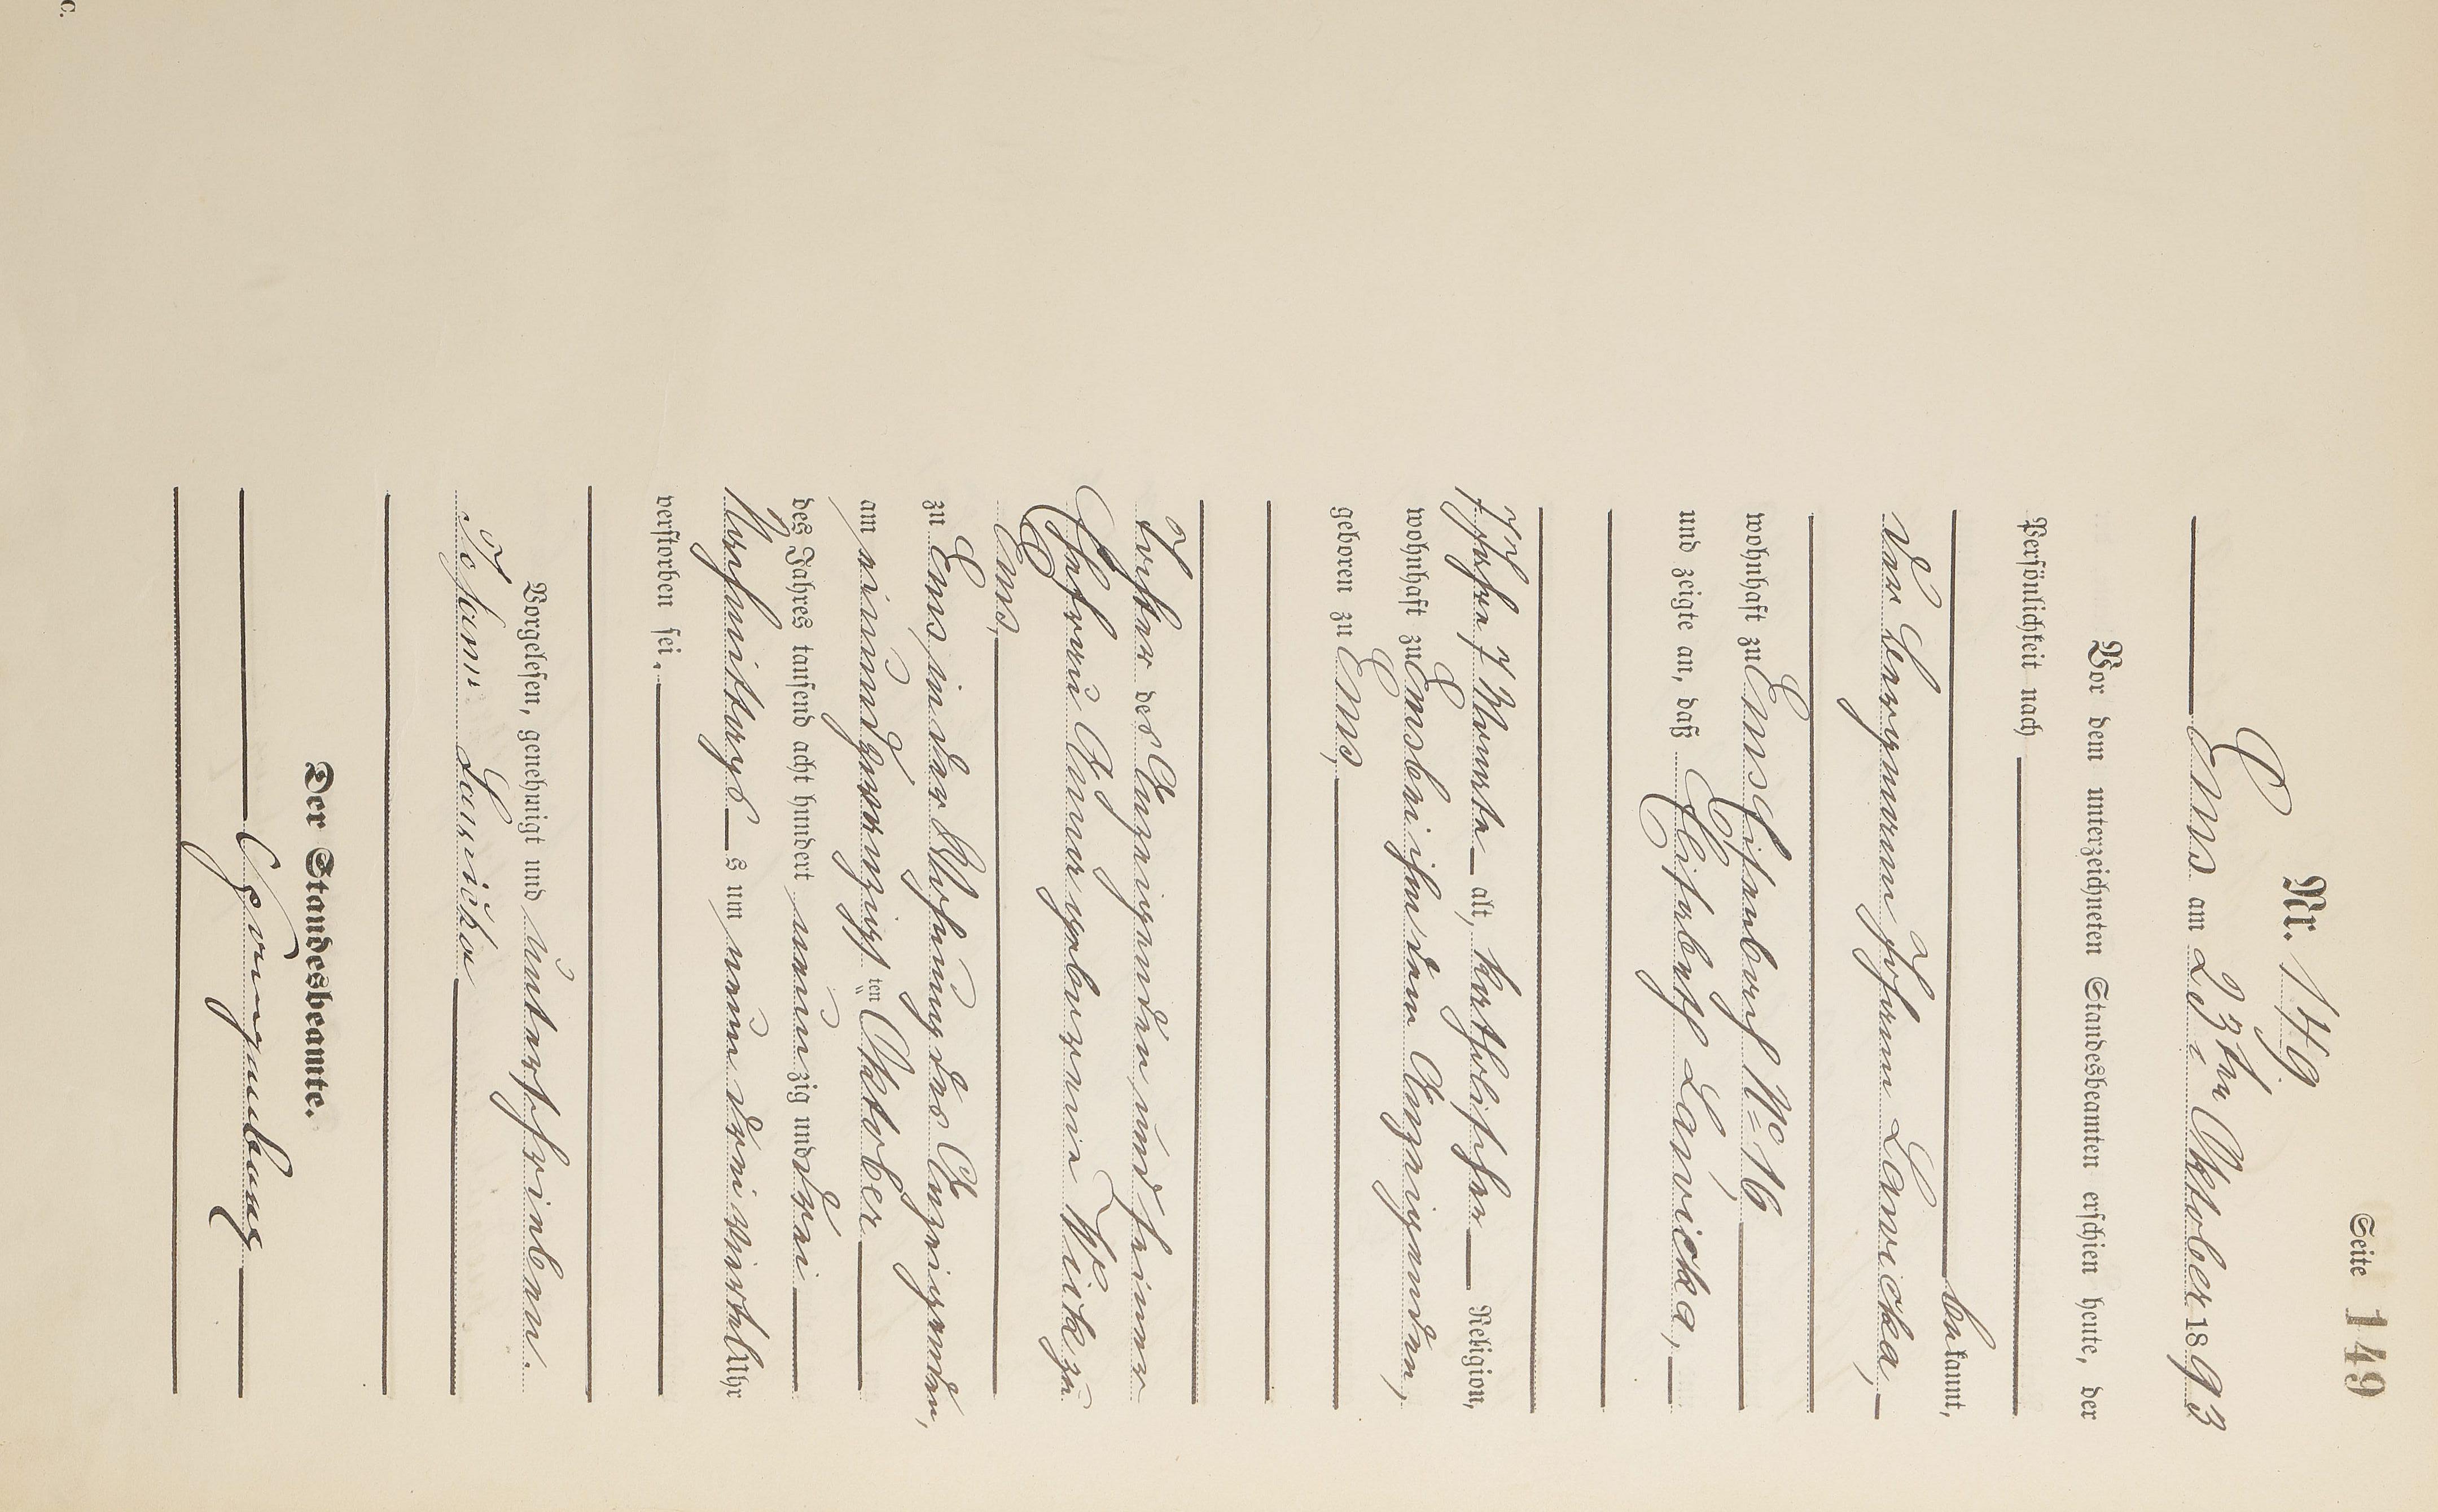 C.
Seite 149
Nr. 149
Ems am 23ten Oktober 1893
Vor dem unterzeichneten Standesbeamten erschien heute, der
Persönlichkeit nach
bekannt,
der Bergmann Johann Lavicka,
wohnhaft zu Ems Eisenbach No 16
und zeigte an, daß Elisabeth Lavicka,
7 Jahre, 7 Monate alt, katholischer Religion,
wohnhaft zu Ems bei ihm dem Anzeigenden,
geboren zu Ems,
Tochter des Anzeigenden und seiner
Ehefrau Anna geborenen Wirk zu
Ems,
zu Ems, in der Wohnung des Anzeigenden,
am einundzwanzigsten Oktober
des Jahres tausend acht hundert neunzig und drei
Nachmittags um neun drei viertel Uhr
verstorben sei.
Vorgelesen, genehmigt und unterschrieben.
Johann Lavicka
Der Standesbeamte.